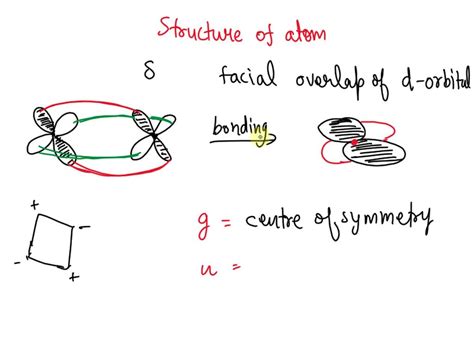 Structure of atom
δ facial overlap of d-orbital
bonding
g = centre of symmetry
u =
+
-
-
+